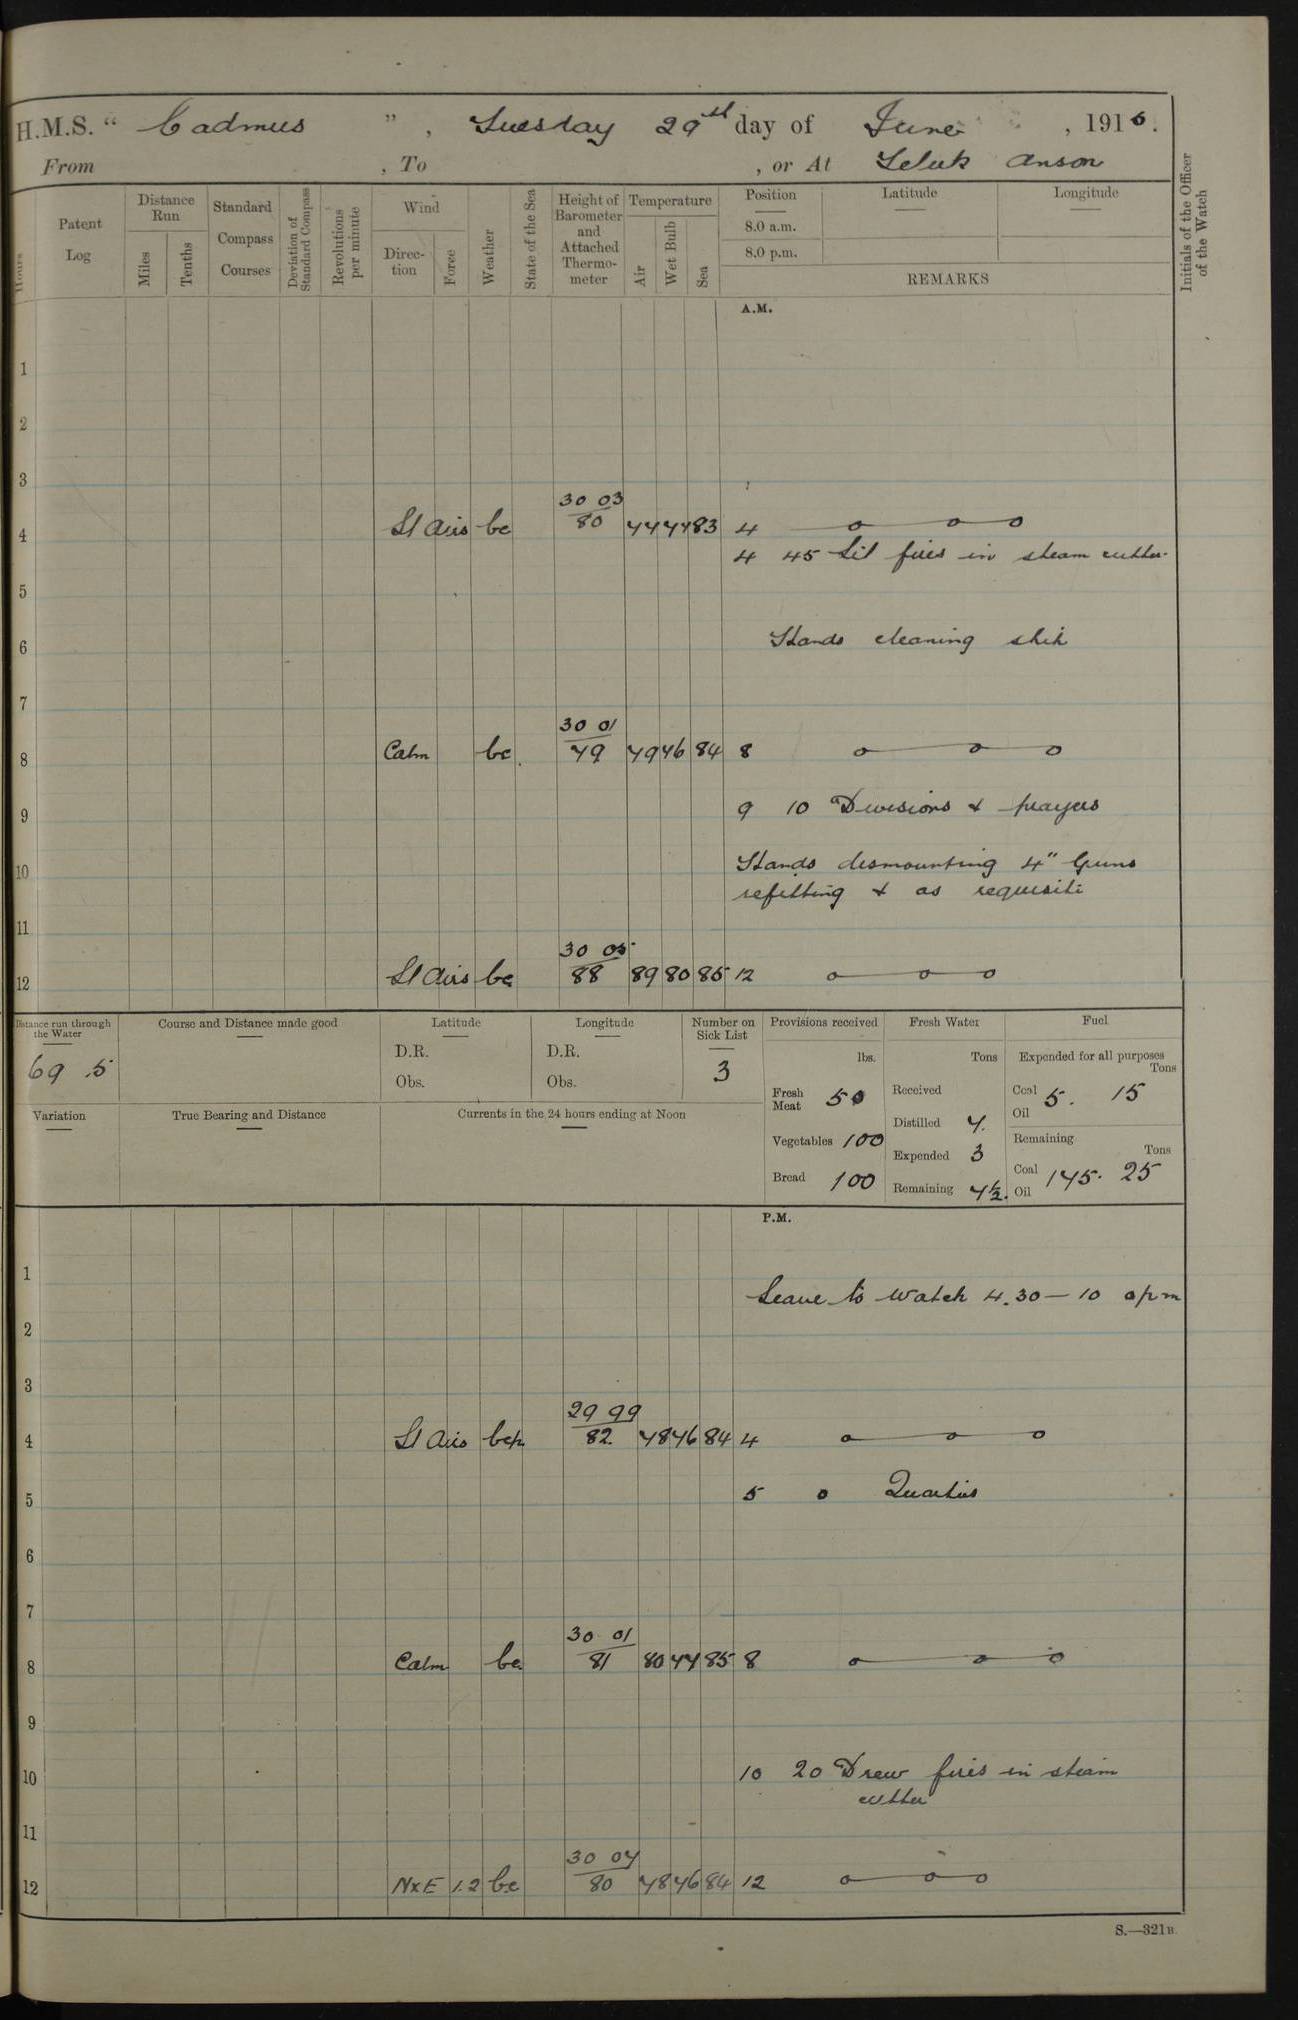 H.M.S. "Cadmus", Tuesday 29th day of June, 1915.
From , To , or At Teluk Anson
Hours
Patent Log
Distance Run
Miles
Tenths
Standard Compass Courses
Deviation of Standard Compass
Revolutions per minute
Wind
Direction
Force
Weather
State of the Sea
Height of Barometer and Attached Thermometer
Temperature
Air
Wet Bulb
Sea
Position
8.0 a.m.
8.0 p.m.
Latitude
Longitude
REMARKS
Initials of the Officer of the Watch
A.M.
1
2
3
30 03
4 Lt Airs bc 80 77 77 83 4
4 45 Lit fires in steam cutter
5
6 Hands cleaning ship
7
30 01
8 Calm bc 79 79 76 84 8
9 9 10 Divisions & prayers
10 Hands dismounting 4" Guns
refitting & as requisite
11
30 05
12 Lt Airs bc 88 89 80 85 12
Distance run through the Water
69 .5
Course and Distance made good
Latitude
D.R.
Obs.
Longitude
D.R.
Obs.
Number on Sick List
3
Variation
True Bearing and Distance
Currents in the 24 hours ending at Noon
Provisions received
lbs.
Fresh Meat 50
Vegetables 100
Bread 100
Fresh Water
Tons
Received
Distilled 7.
Expended 3
Remaining 7½.
Fuel
Expended for all purposes
Tons
Coal 5. 15
Oil
Remaining
Tons
Coal 175. 25
Oil
P.M.
1 Leave to watch 4.30 — 10 opm
2
3
29 99
4 Lt Airs bcp 82 78 76 84 4
5 5 0 Quarters
6
7
30 01
8 Calm bc 81 80 77 85 8
9
10 10 20 Drew fires in steam
cutter
11
30 07
12 NxE 1.2 bc 80 78 76 84 12
S.—321B.